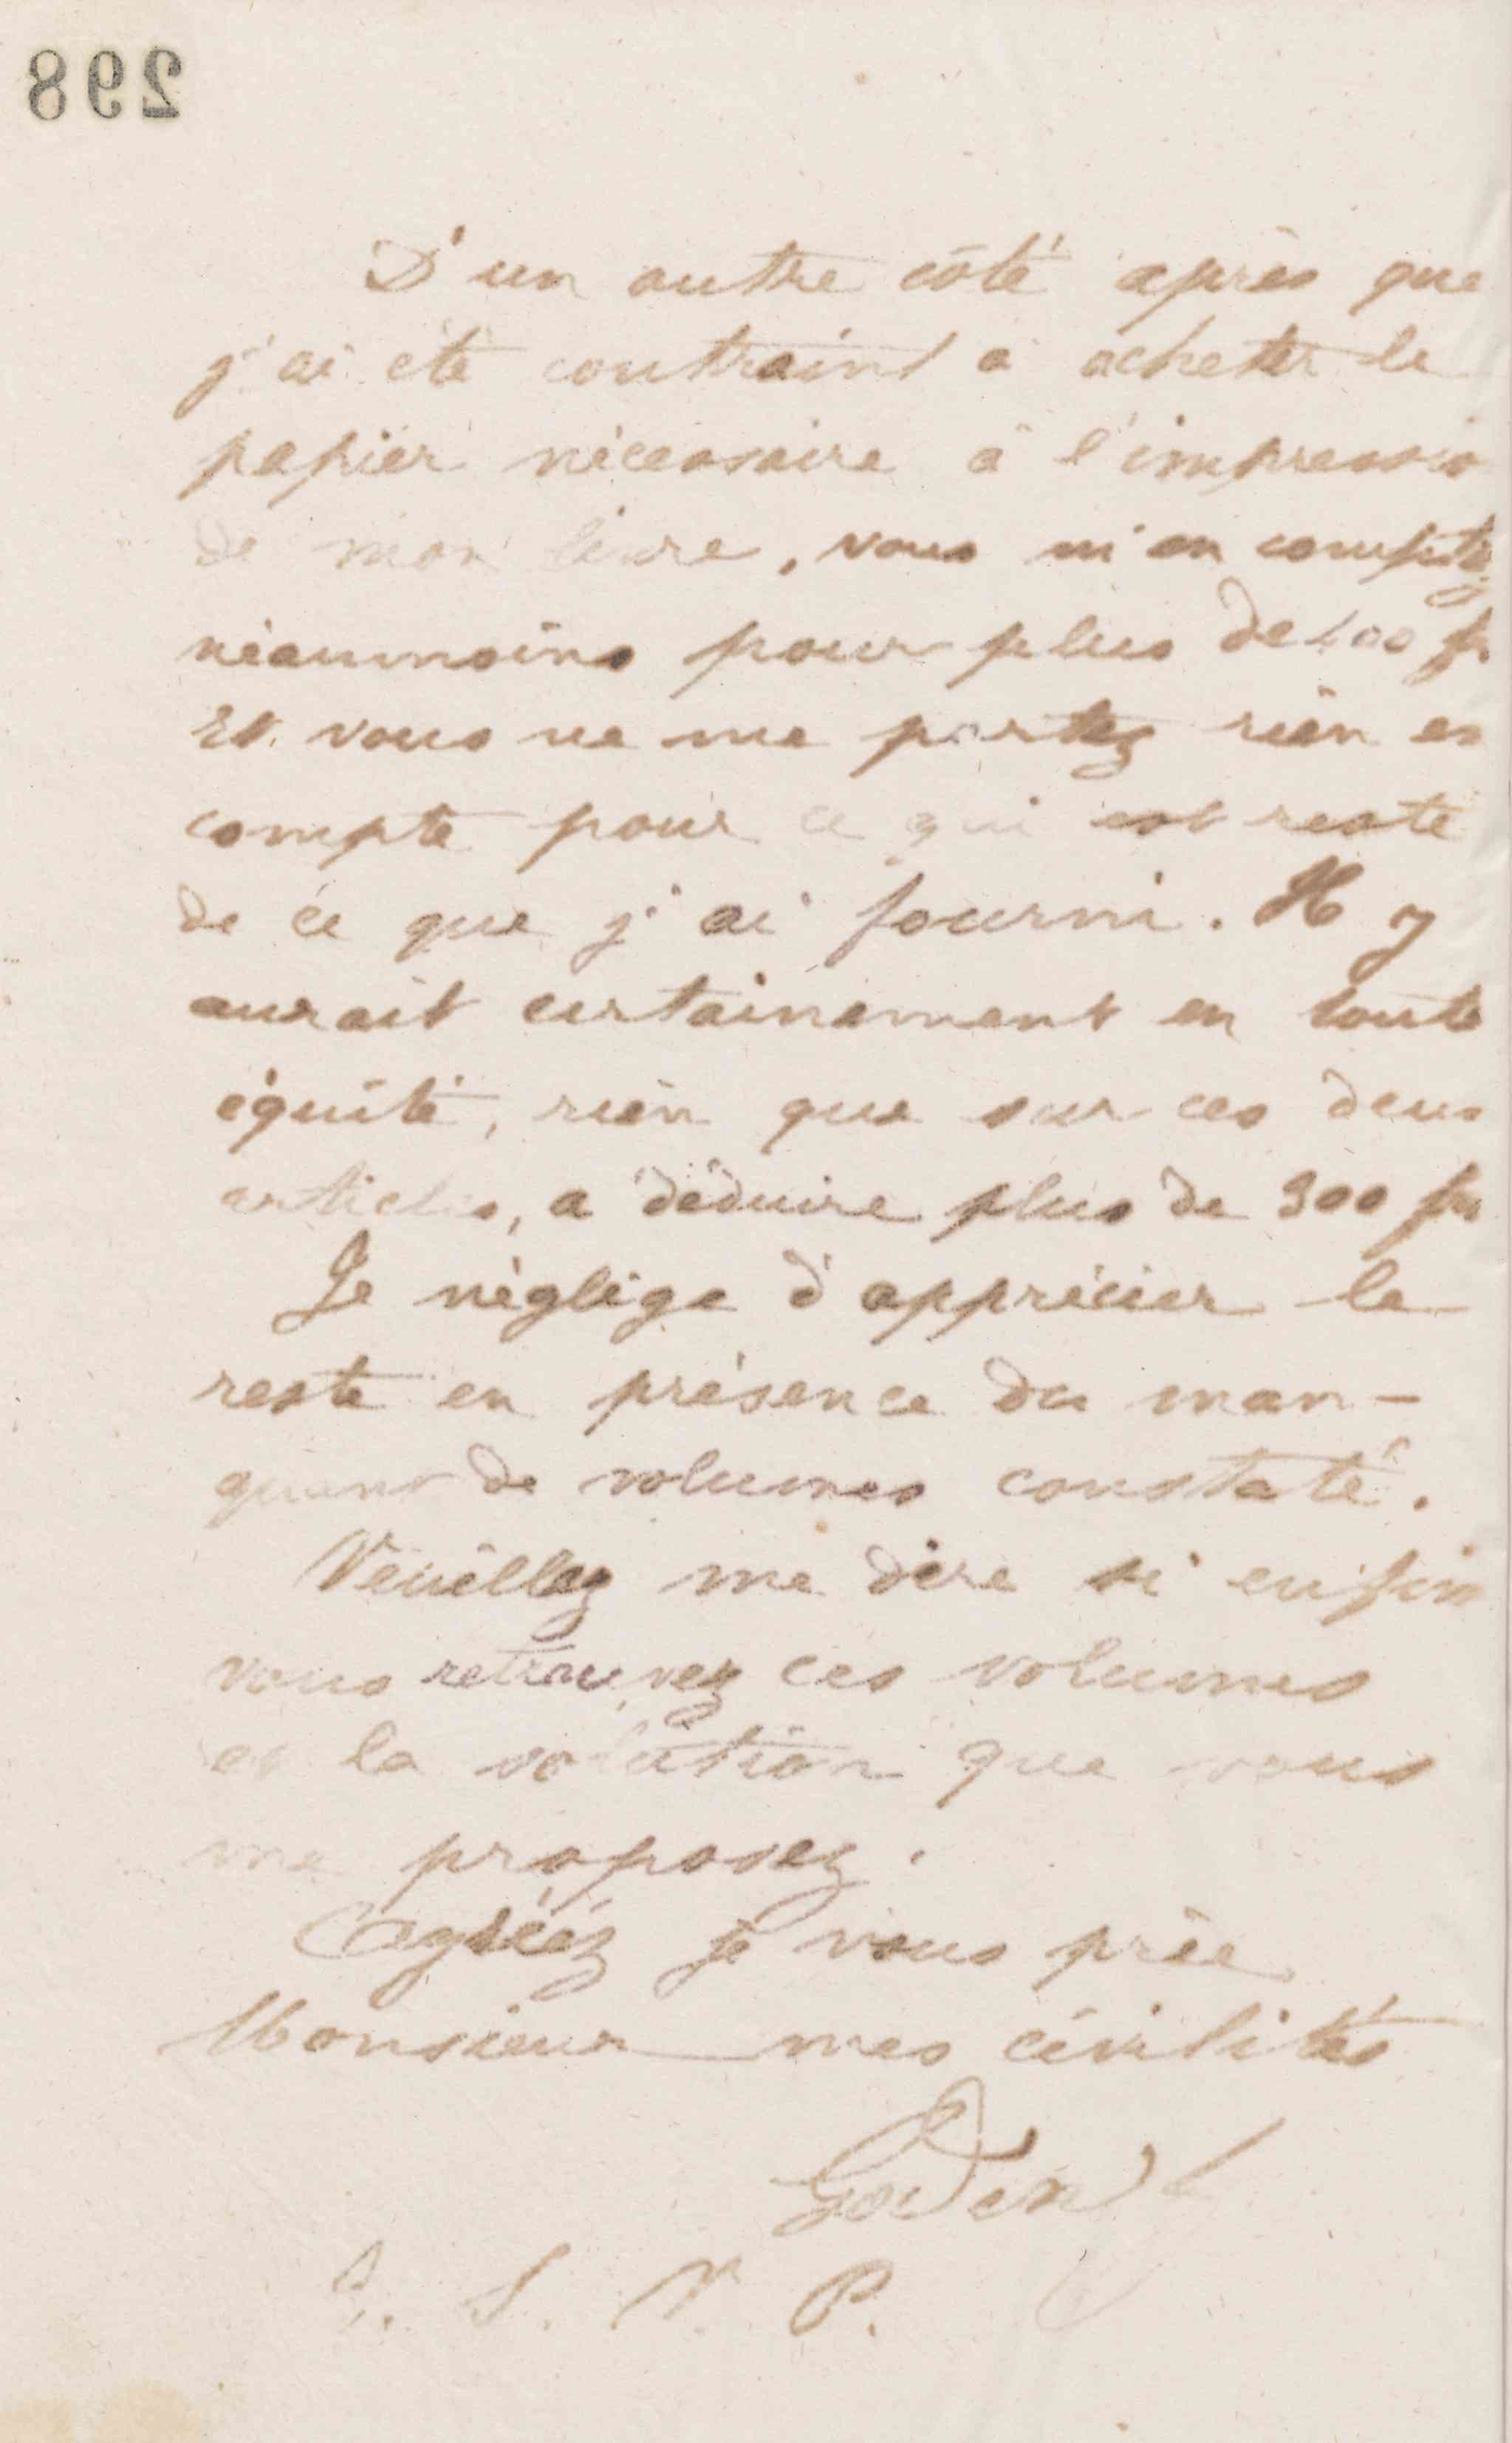 298
D'un autre côté après que
j'ai été contraint à acheter le
papier nécessaire à l'impression
de mon livre, vous m'en comptez
néanmoins pour plus de 100 f.
Et vous ne me portez rien en
compte pour ce qui est resté
de ce que j'ai fourni. Il y
aurait certainement en toute
équité, rien que sur ces deux
articles, a déduire plus de 300 frs
Je néglige d'apprécier le
reste en présence du man-
quant de volumes constaté.
Veuillez me dire si enfin
vous retrouvez ces volumes
et la solution que vous
me proposez.
Agréez je vous prie
Monsieur mes civilités
Godin
S. V. P.